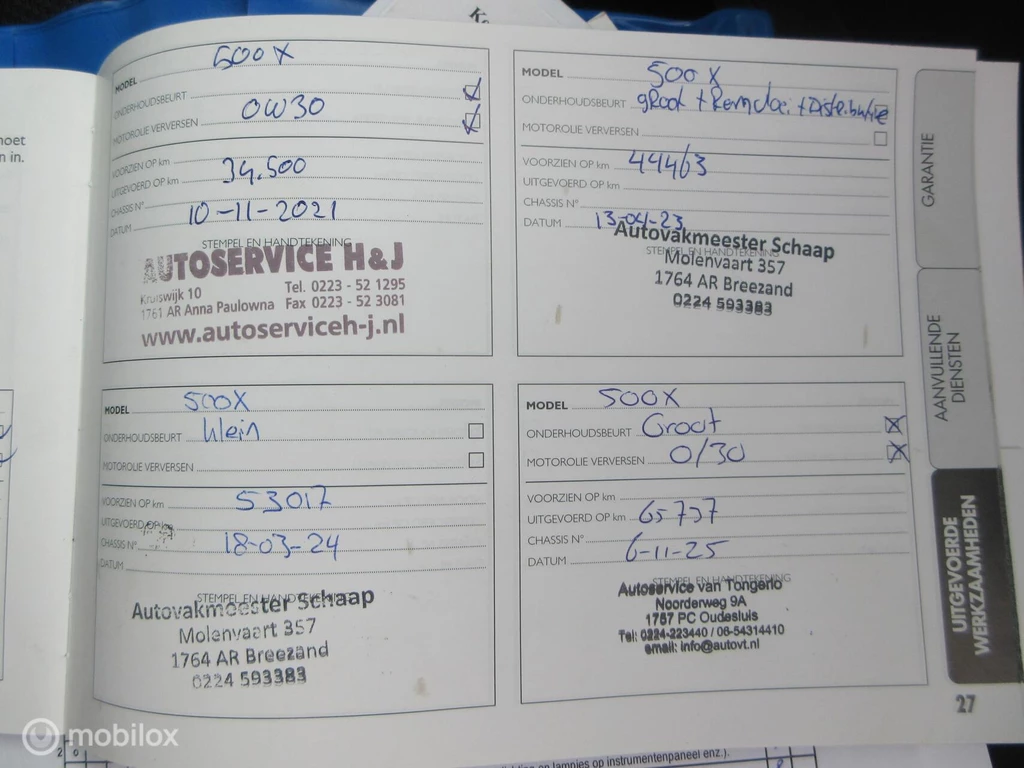 500X
MODEL
ONDERHOUDSBEURT
MOTOROLIE VERVERSEN 0W30
VOORZIEN OP km
UITGEVOERD OP km 34.500
CHASSIS N°
DATUM 10-11-2021
STEMPEL EN HANDTEKENING
AUTOSERVICE H&J
Kruiswijk 10 Tel. 0223 - 52 1295
1761 AR Anna Paulowna Fax 0223 - 52 3081
www.autoserviceh-j.nl
MODEL 500X
ONDERHOUDSBEURT gRoot + Remvloei. + Distributie
MOTOROLIE VERVERSEN
VOORZIEN OP km 44463
UITGEVOERD OP km
CHASSIS N°
DATUM 13-04-23
Autovakmeester Schaap
STEMPEL EN HANDTEKENING
Molenvaart 357
1764 AR Breezand
0224 593383
MODEL 500X
ONDERHOUDSBEURT klein
MOTOROLIE VERVERSEN
VOORZIEN OP km 53017
UITGEVOERD OP km
CHASSIS N° 18-03-24
DATUM
STEMPEL EN HANDTEKENING
Autovakmeester Schaap
Molenvaart 357
1764 AR Breezand
0224 593383
MODEL 500X
ONDERHOUDSBEURT Groot
MOTOROLIE VERVERSEN 0/30
VOORZIEN OP km
UITGEVOERD OP km 65737
CHASSIS N°
DATUM 6-11-25
STEMPEL EN HANDTEKENING
Autoservice van Tongerlo
Noorderweg 9A
1757 PC Oudesluis
Tel: 0224-223440 / 06-54314410
email: info@autovt.nl
GARANTIE
AANVULLENDE
DIENSTEN
UITGEVOERDE
WERKZAAMHEDEN
27
n in.
en lampjes op instrumentenpaneel enz.).
mobilox